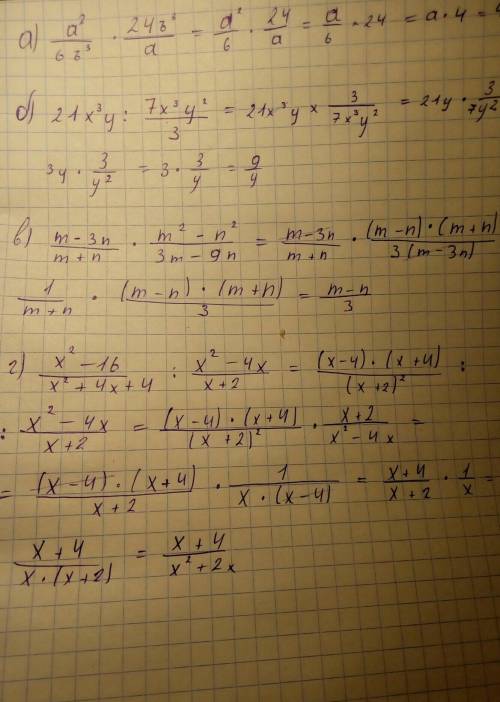 а) a²/6z³ · 24z³/a = a²/6 · 24/a = a/6 · 24 = a · 4 =
б) 21x³y : 7x³y²/3 = 21x³y × 3/7x³y² = 21y · 3/7y²
3y · 3/y² = 3 · 3/y = 9/y
в) m-3n/m+n · m²-n²/3m-9n = m-3n/m+n · (m-n)·(m+n)/3(m-3n)
1/m+n · (m-n)·(m+n)/3 = m-n/3
г) x²-16/x²+4x+4 : x²-4x/x+2 = (x-4)·(x+4)/(x+2)² :
: x²-4x/x+2 = (x-4)·(x+4)/(x+2)² · x+2/x²-4x =
= (x-4)·(x+4)/x+2 · 1/x·(x-4) = x+4/x+2 · 1/x =
x+4/x·(x+2) = x+4/x²+2x